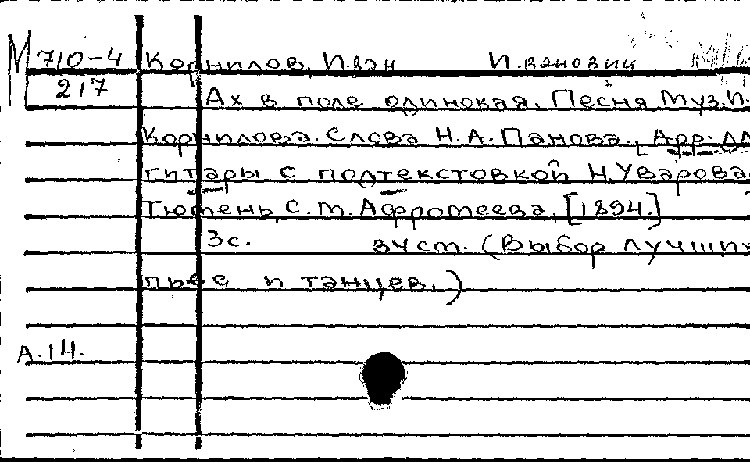 М 710-4 Корнилов, Иван Иванович
217
Ах в поле одинокая. Песня Муз. И.
Корнилова. Слова Н.А. Панова. Арр. дл
гитары с подтекстовкой Н. Уварова
Тюмень, С.М. Афромеева, [1894.]
3с. зчст. (Выбор лучших
пьес и танцев.)
А.14.